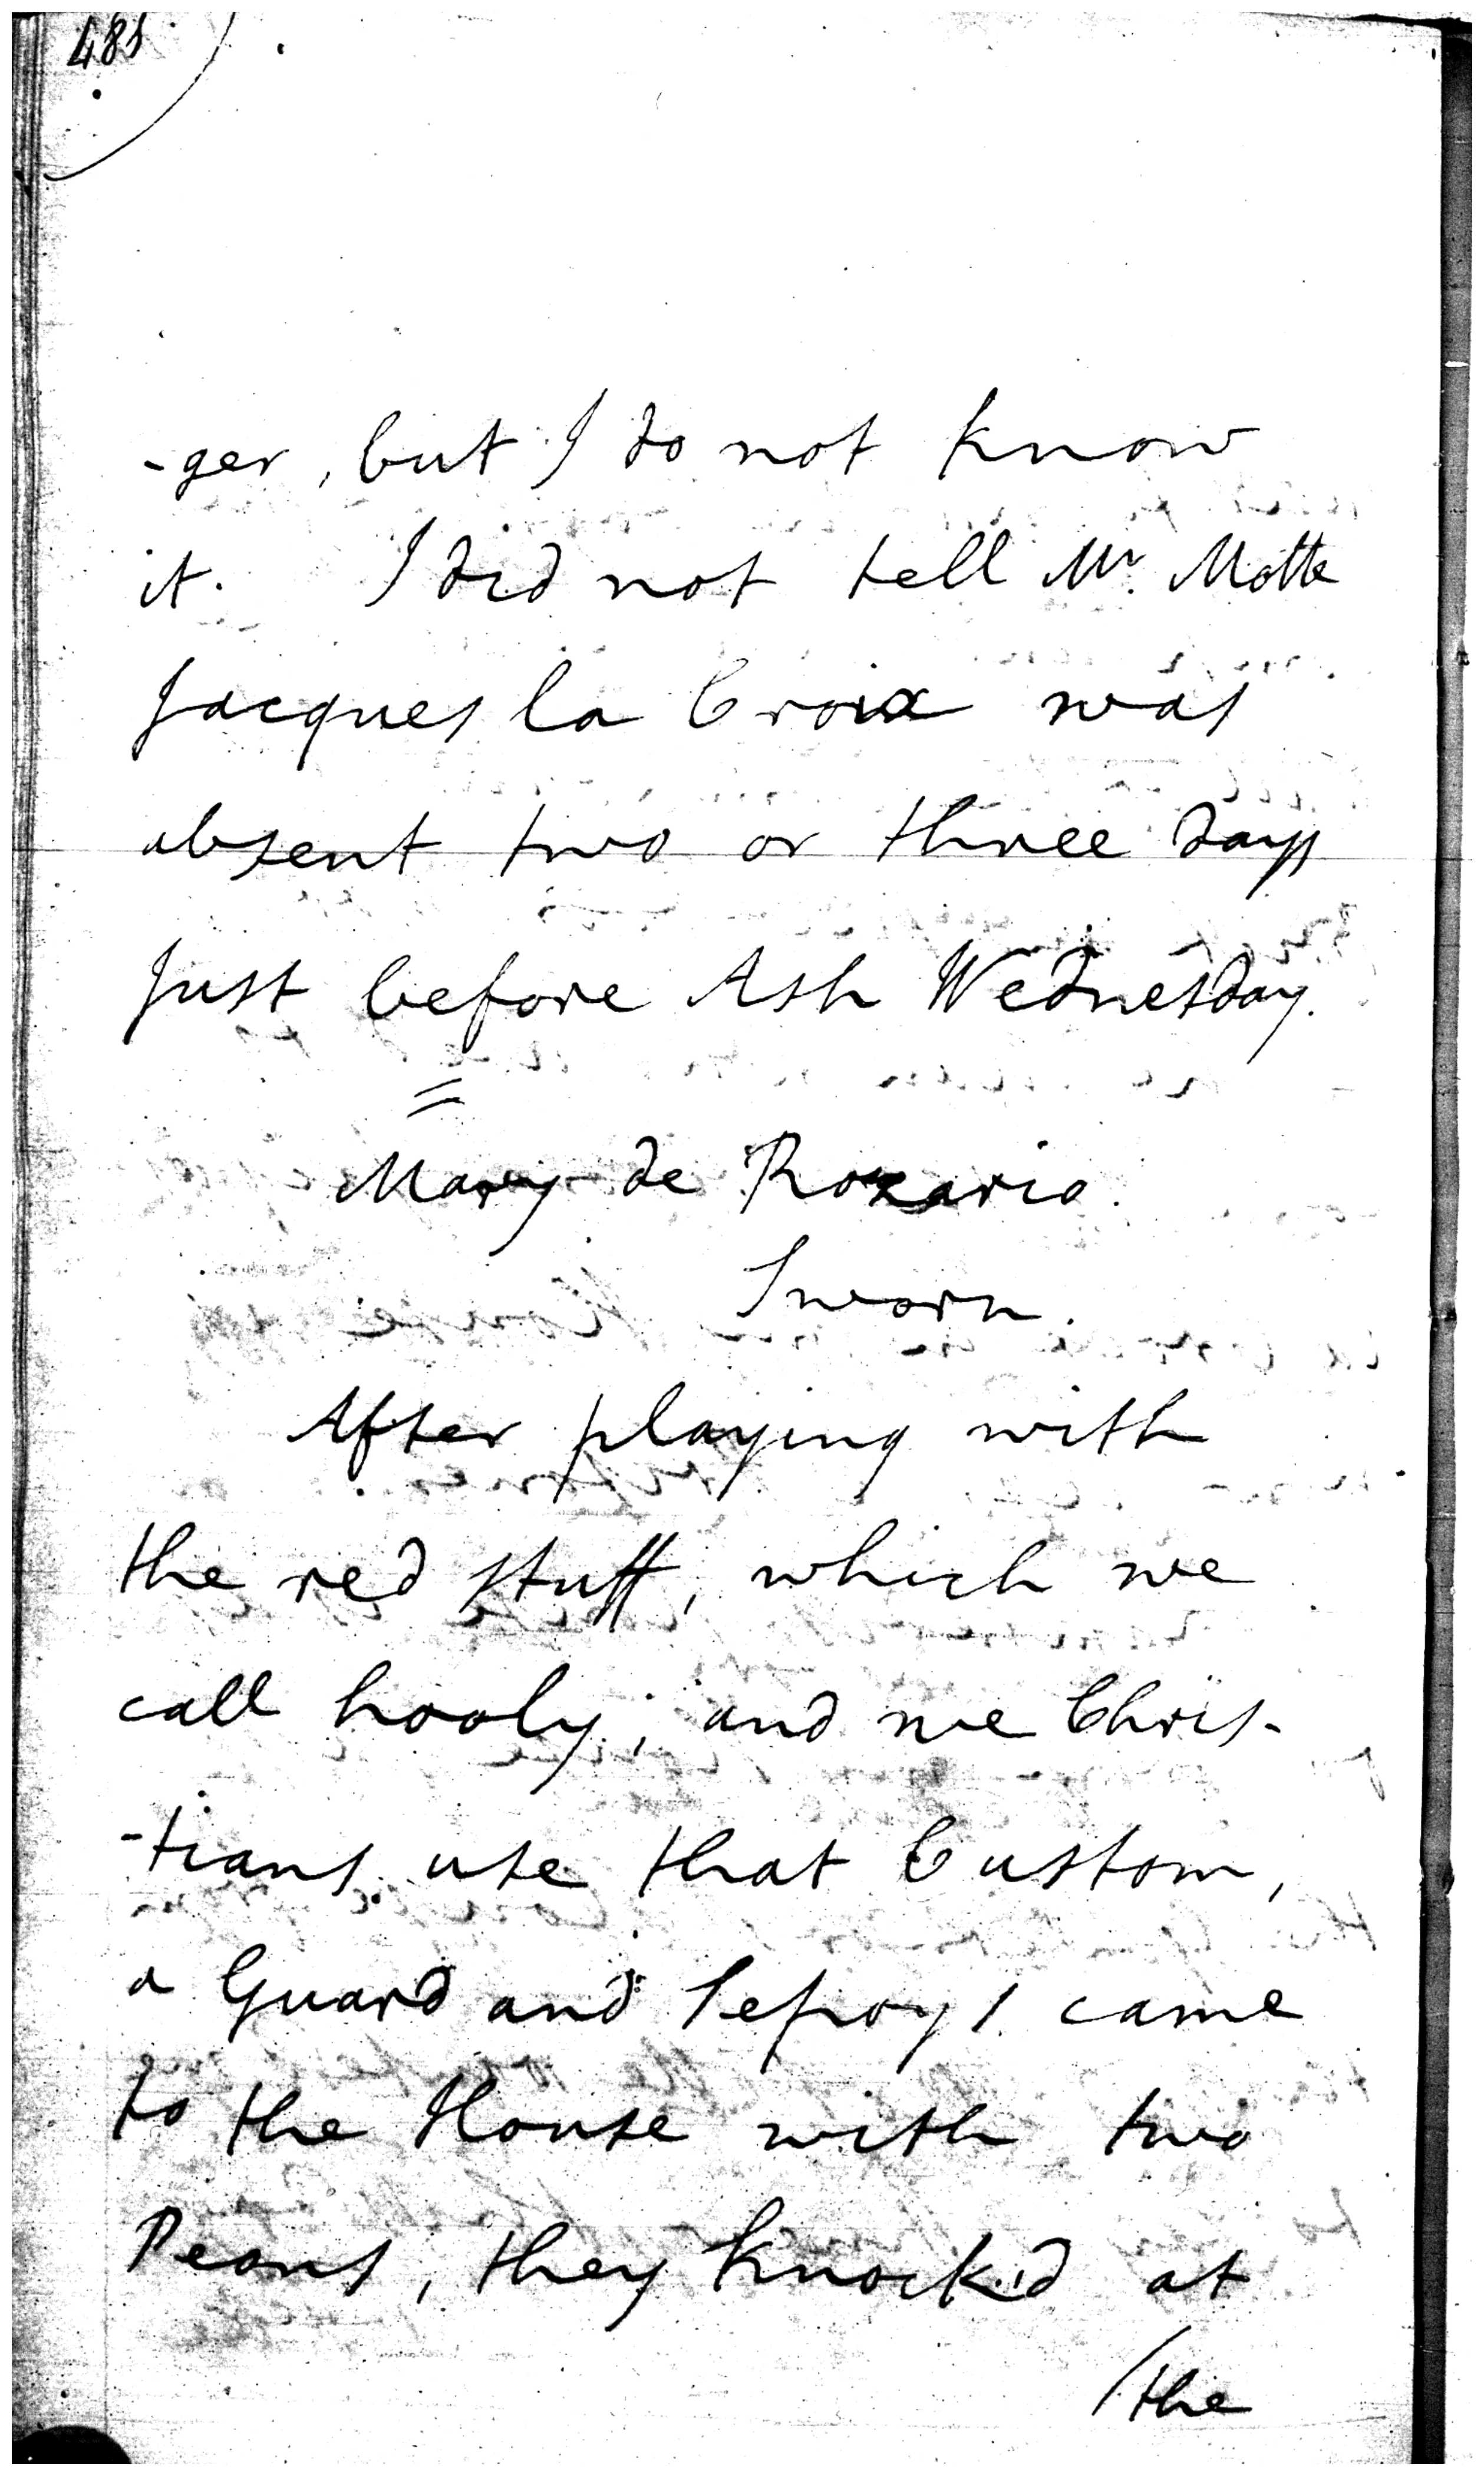 481
-ger, but I do not know
it. I did not tell Mr. Motte
Jacques la Croix was
absent two or three days
just before Ash Wednesday.
=
Mary de Rozario.
Sworn.
After playing with
the red stuff, which we
call hooly; and we Chris-
-tians use that Custom,
a Guard and Sepoys came
to the House with two
Peons, they knock'd at
/the